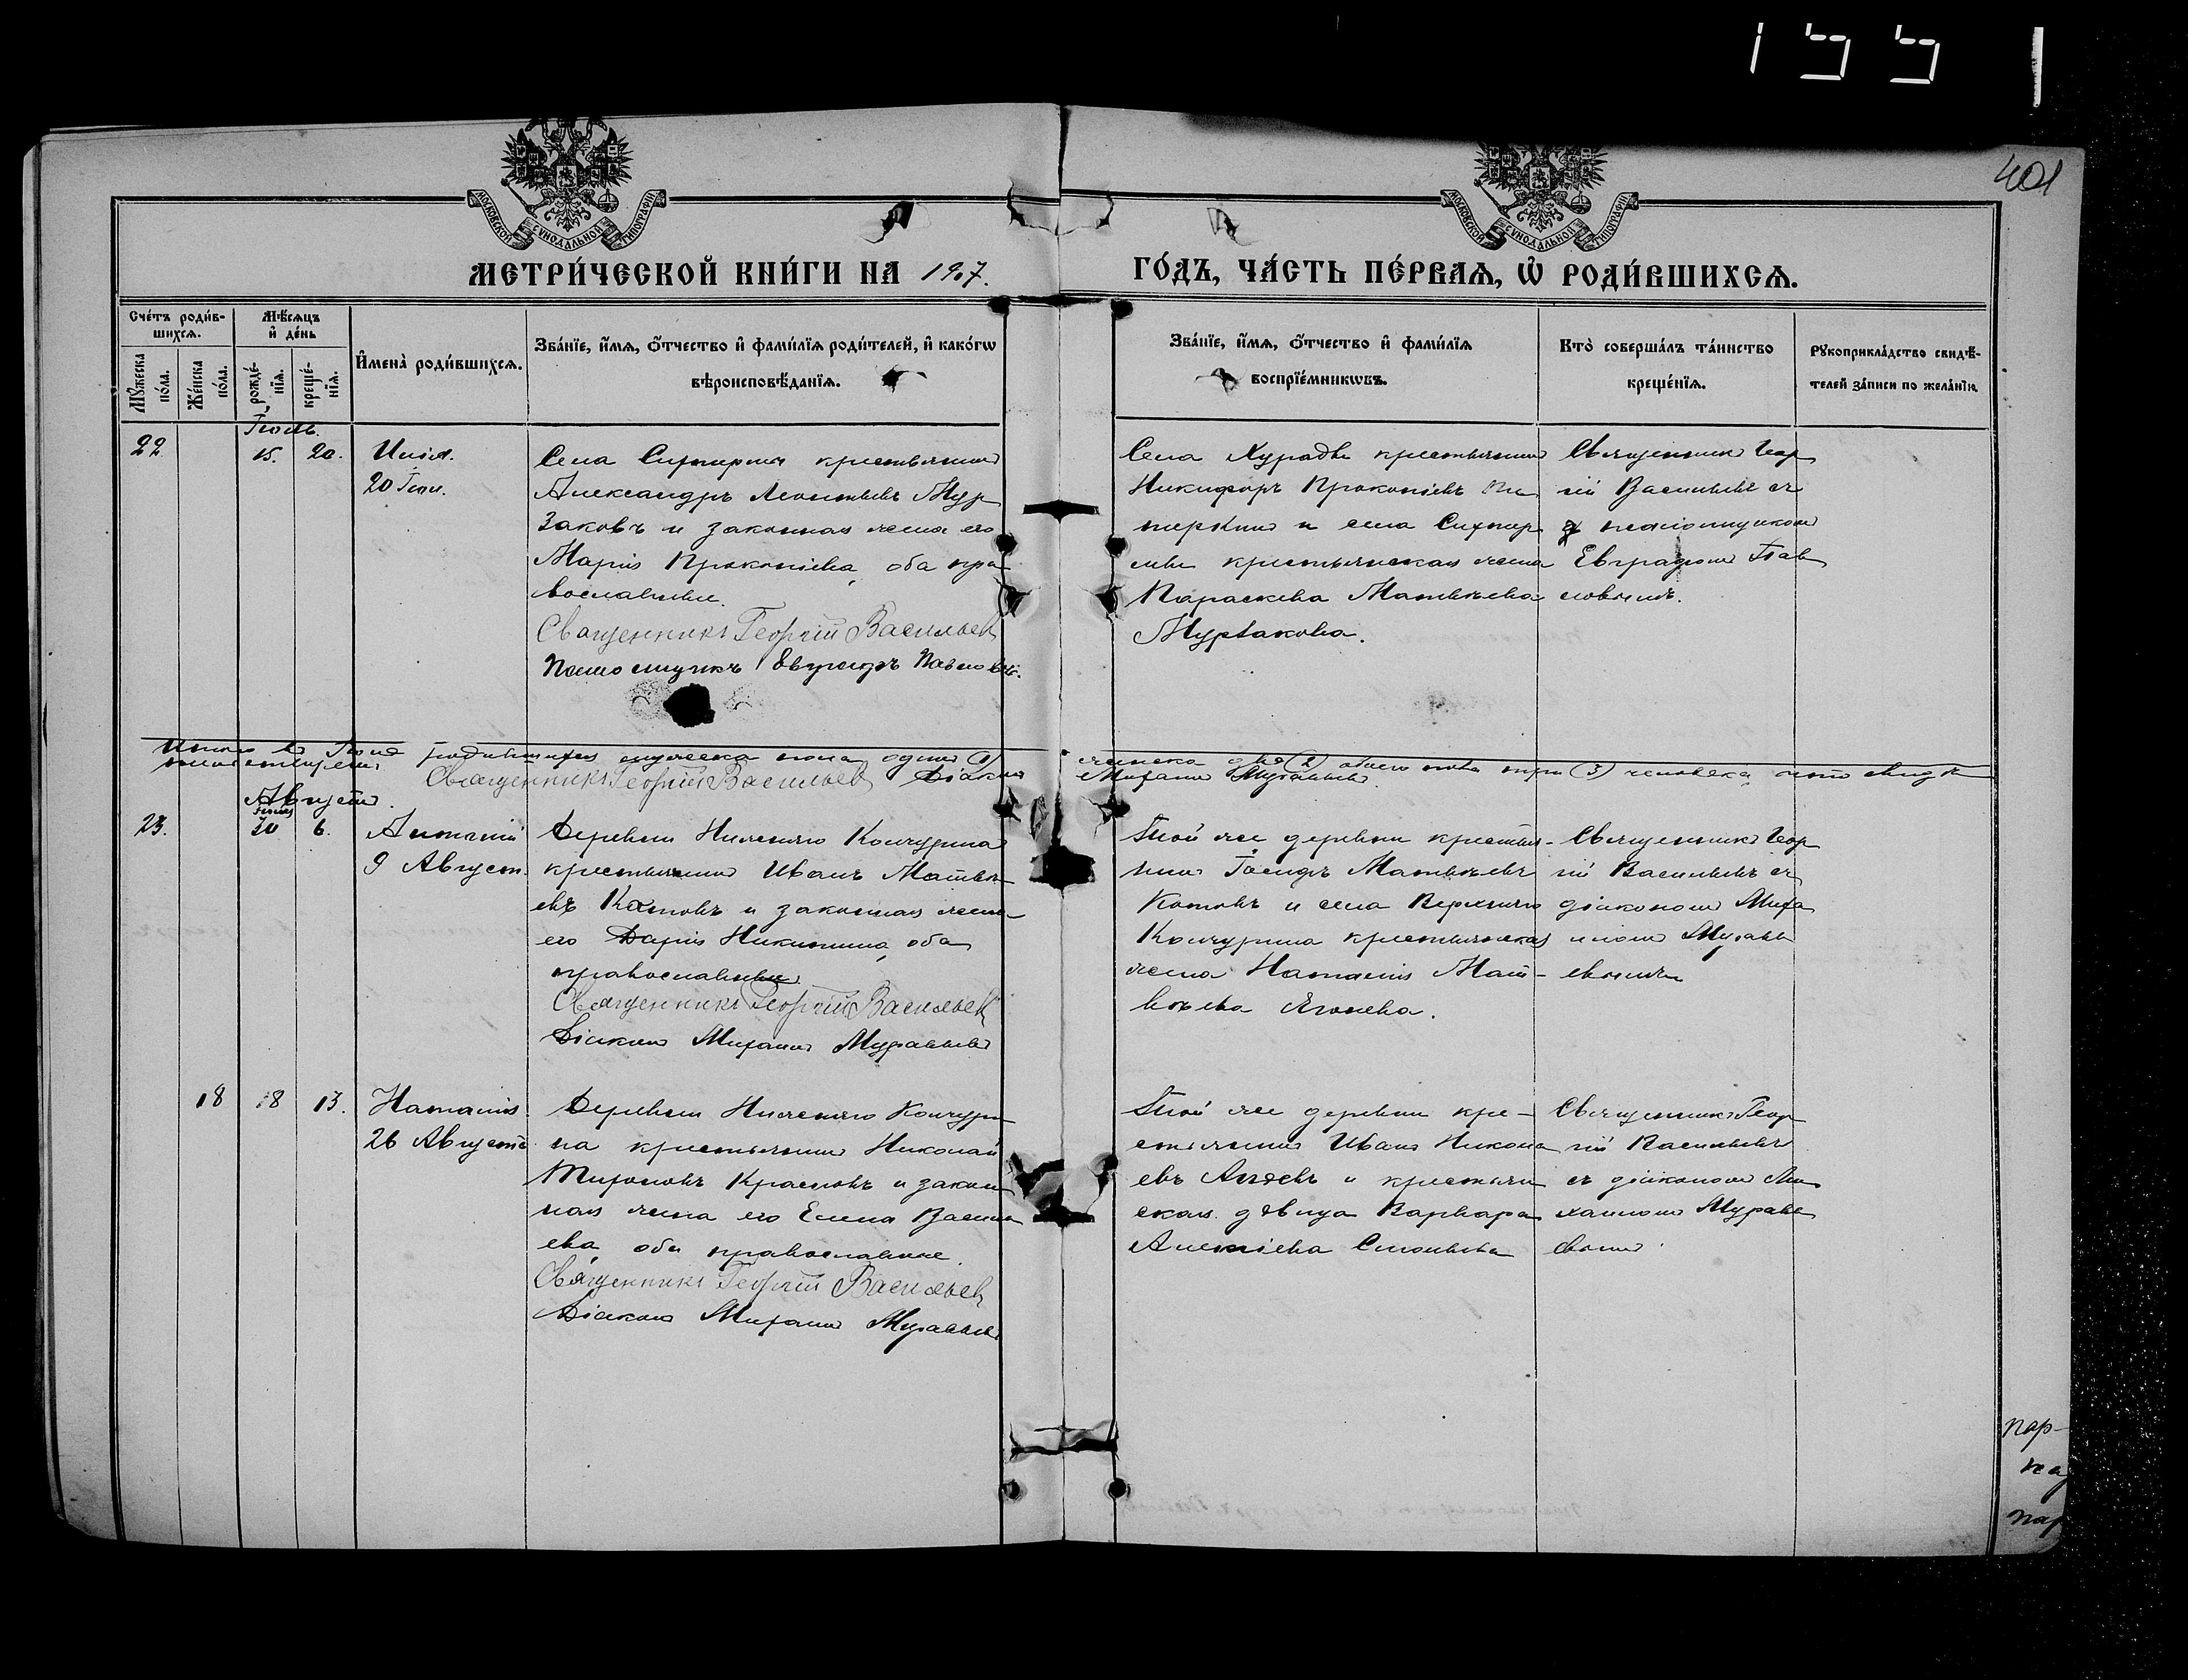 401
МОСКОВСКОЙ СѴНОДАЛЬНОЙ ТИПОГРАФІИ
МОСКОВСКОЙ СѴНОДАЛЬНОЙ ТИПОГРАФІИ
МЕТРИ́ЧЕСКОЙ КНИ́ГИ НА 1907.
ГО́ДЪ, ЧА́СТЬ ПЕ́РВАѦ, Ѡ҆ РОДИ́ВШИХСѦ.
Сче́тъ роди́в-
шихсѧ.
Мꙋ́жеска
по́ла.
Же́нска
по́ла.
Мѣ́сѧцъ
и҆ де́нь
рожде́-
нїѧ.
креще́-
нїѧ.
И҆мена̀ роди́вшихсѧ.
Зва́нїе, и҆́мѧ, ѻ҆́тчество и҆ фами́лїѧ роди́телей, и҆ како́гѡ
вѣроисповѣ́данїѧ.
Зва́нїе, и҆́мѧ, ѻ҆́тчество и҆ фами́лїѧ
воспрїе́мникѡвъ.
Кто̀ соверша́лъ та́инство
креще́нїѧ.
Рꙋкоприкла́дство свидѣ́-
телей за́писи по жела́нїю.
Іюль.
22
15. 20.
Илія.
20 Іюл.
Села крестьянинъ
Александръ Леонтьевъ Мур
заковъ и законная жена его
Марія Прокопіева, оба пра
вославные.
Священникъ Георгій Васильевъ
Псаломщикъ Евграфъ Павловъ.
Села крестьянинъ
Никифоръ Прокопіевъ
и села
крестьянская жена
Параскева Матвѣева
Мурзакова.
Священникъ Геор
гій Васильевъ съ
псаломщикомъ
Евграфомъ Пав
ловымъ.
Итого въ Іюлѣ родившихся мужеска пола одинъ (1)
женска два (2) обоего пола три (3) человека
Священникъ Георгій Васильевъ Діаконъ
Михаилъ Муравьевъ
Августъ.
23.
Іюль
30 6.
Антоній
9 Август.
Деревни Нижняго Кончурина
крестьянинъ Иванъ Матвѣ-
евъ Котовъ и законная жена
его Дарія Никитина, оба
православные
Священникъ Георгій Васильевъ
Діаконъ Михаилъ Муравьевъ
Той же деревни крестья-
нинъ Матвѣевъ
Котовъ и села Верхняго
Кончурина крестьянская
жена Наталія Мат-
вѣева
Священникъ Геор
гій Васильевъ съ
діакономъ Миха
иломъ Муравь
евымъ
18
18 13.
Наталія
26 Августа
Деревни Нижняго Кончури
на крестьянинъ Николай
Красновъ и закон
ная жена его Елена Василь
ева, оба православные.
Священникъ Георгій Васильевъ
Діаконъ Михаилъ Муравьевъ
Той же деревни кре-
стьянинъ Иванъ Никола
евъ и крестьян
ская дѣвица Варвара
Алексіева
Священникъ Геор
гій Васильевъ
съ діакономъ Ми
хаиломъ Муравь
евымъ